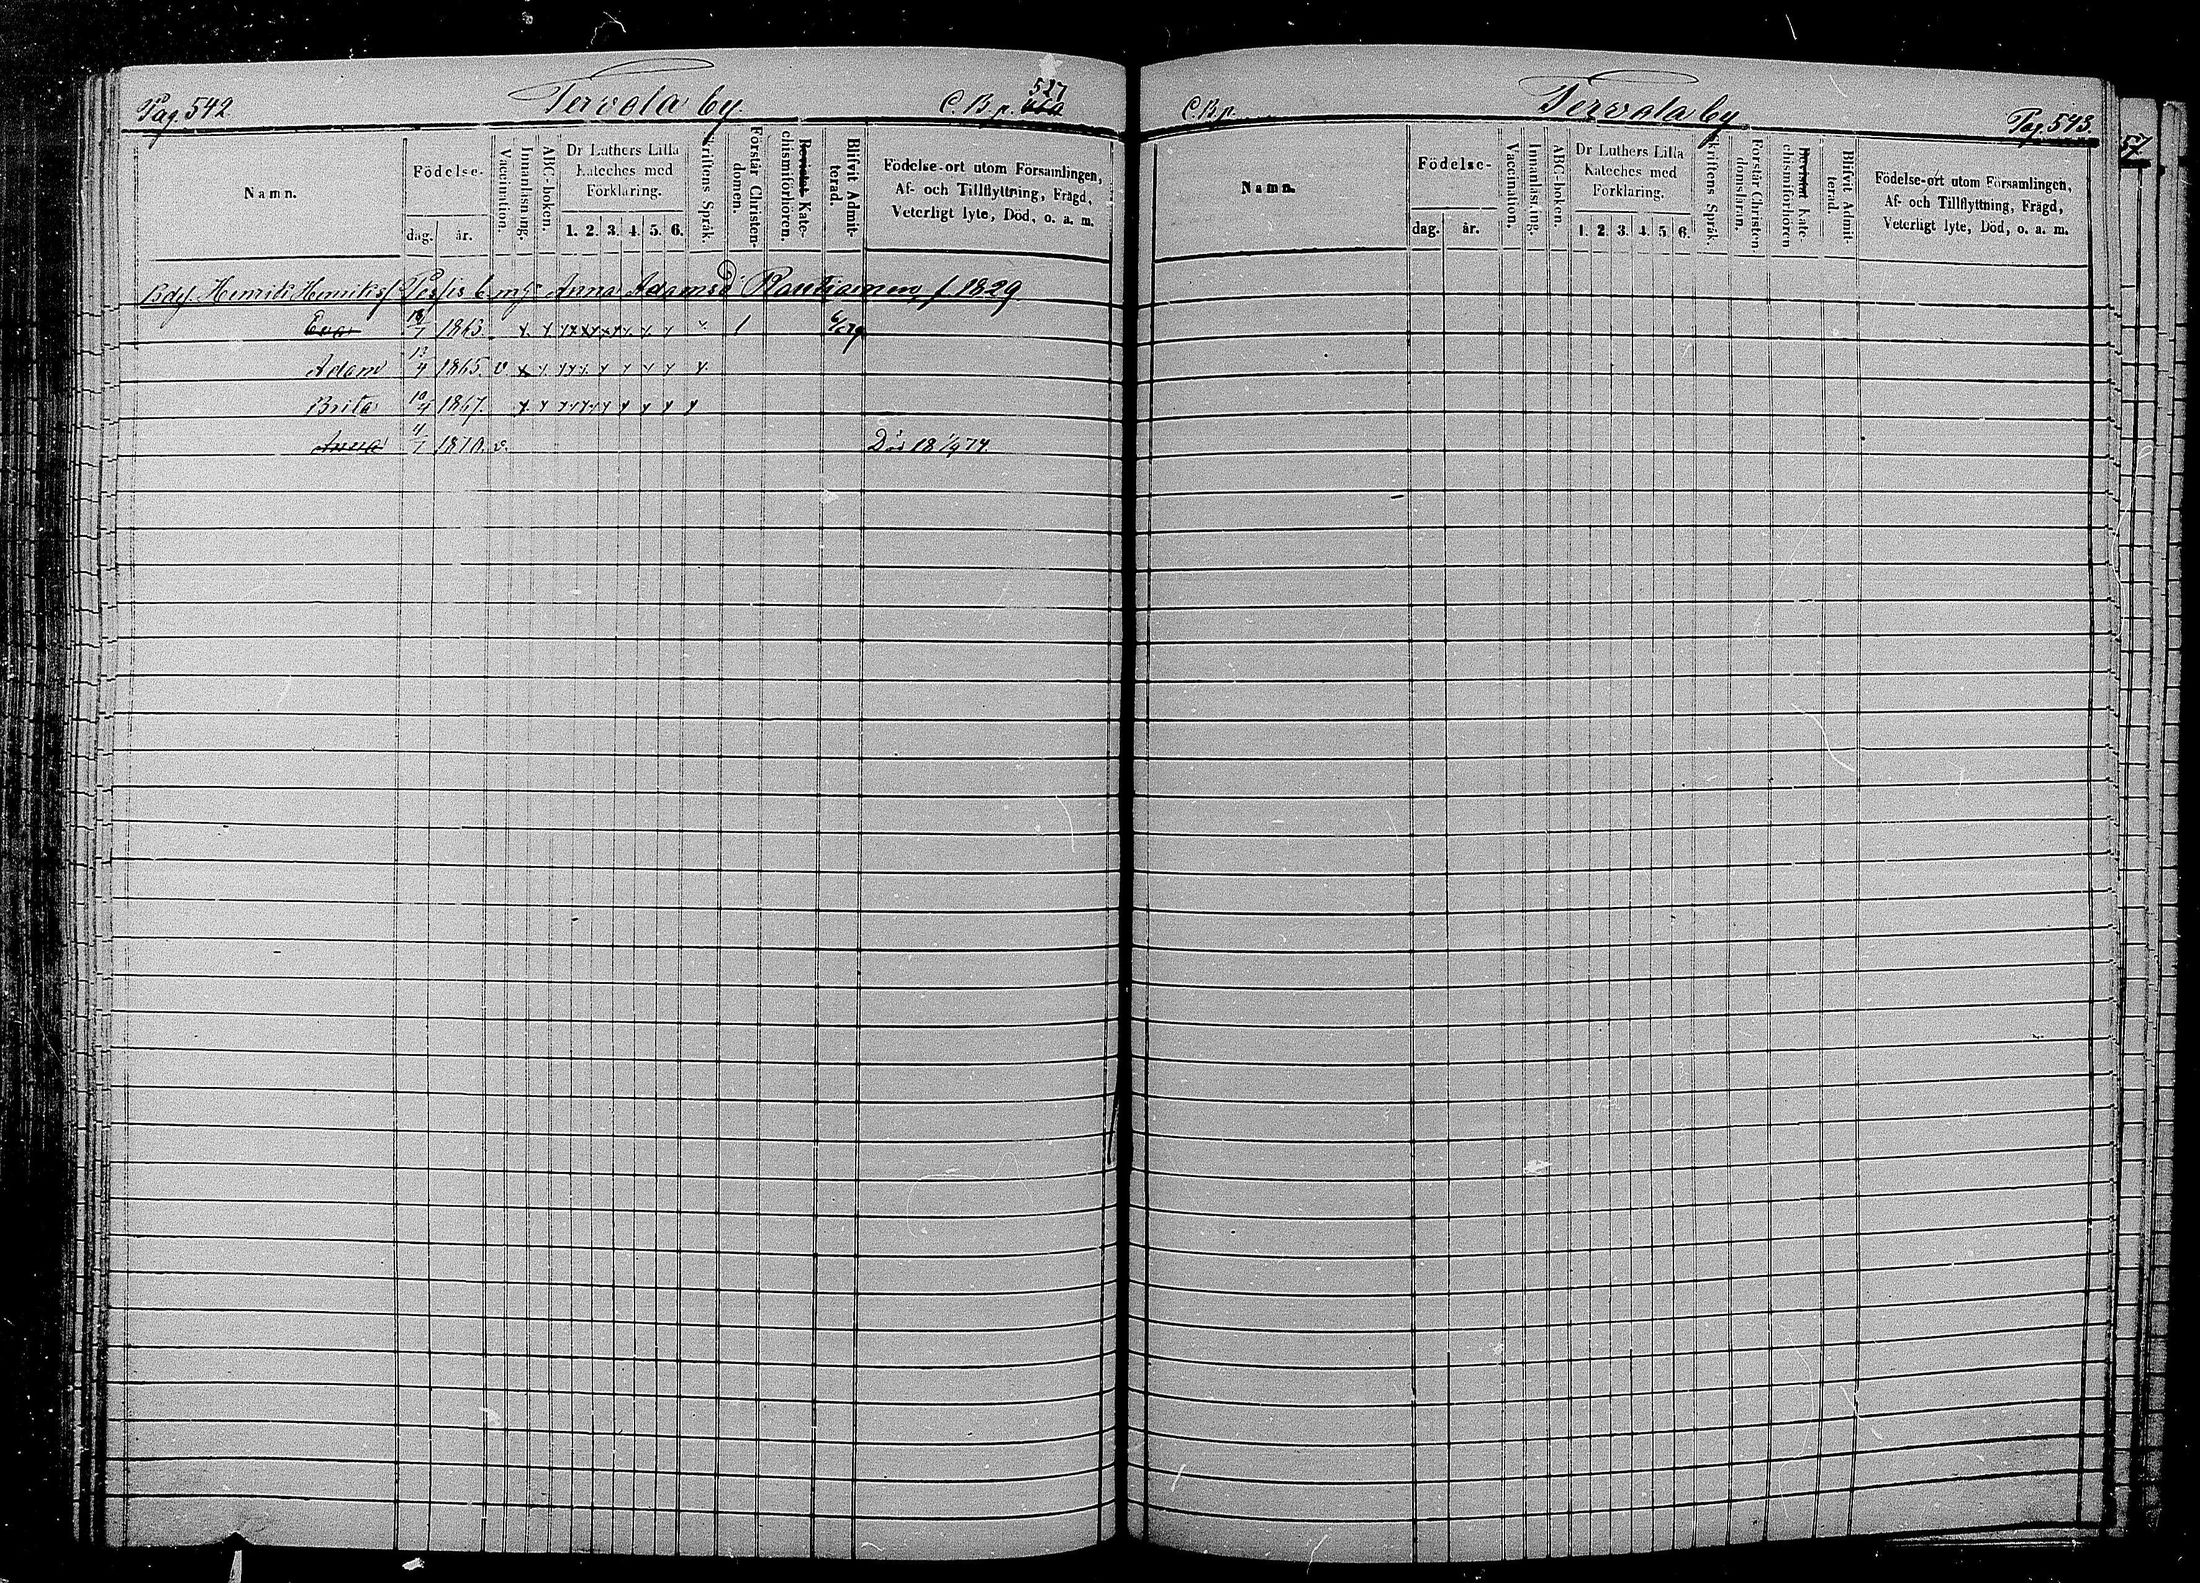 Pag. 542 Tervola by. C.B.p. 527
Namn. Födelse- dag. år. Vaccination. Innanläsning. ABC-boken. Dr Luthers Lilla Kateches med Förklaring. 1. 2. 3. 4. 5. 6. Skriftens Språk. Förstår Christendomen. Bevistat Katechismiförhören. Blifvit Admitterad. Födelse-ort utom Församlingen, Af- och Tillflyttning, Frägd, Veterligt lyte, Död, o. a. m.
Henrik Henrikss Anna Adamsd f. 1829
Eva 1863.
Adam 1865. v
Brita 10/4 1867.
Anna 1870. v. Död
C.B.p. Tervola by Pag. 543.
Namn. Födelse- dag. år. Vaccination. Innanläsning. ABC-boken. Dr Luthers Lilla Kateches med Förklaring. 1. 2. 3. 4. 5. 6. Skriftens Språk. Förstår Christendomsläran. Bevistat Katechismiförhören Blifvit Admitterad. Födelse-ort utom Församlingen, Af- och Tillflyttning, Frägd, Veterligt lyte, Död, o. a. m.